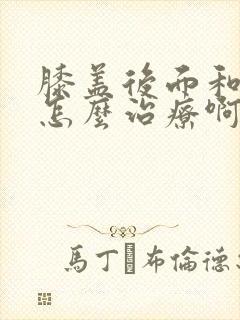 膝盖後而和
怎麼治療啊
馬丁 布倫德